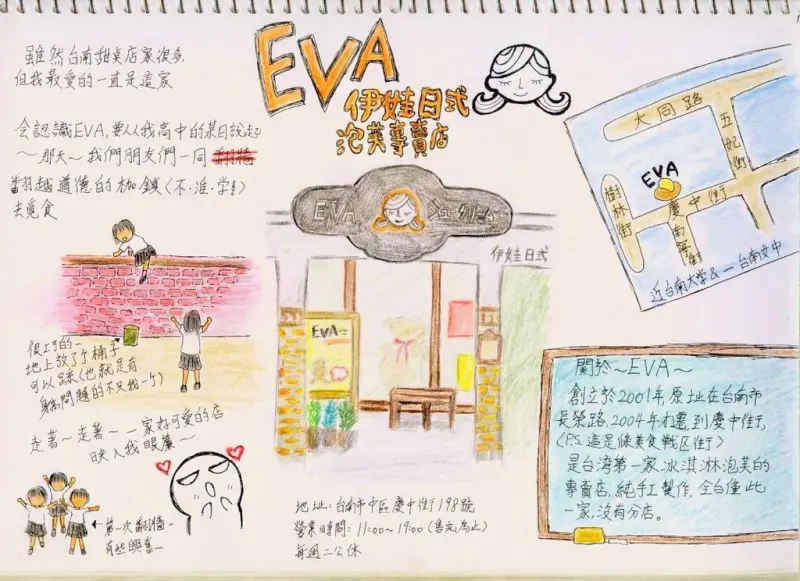 雖然台南甜點店家很多,
但我最愛的一直是這家
会認識EVA,要从我高中的某日說起
～那天～我們朋友們一同
翻越道德的枷鎖(不.准.学!)
去覓食
很巧的～
地上放了个桶子
可以踩(也就是有
問題的不只我一个)
走著～走著～一家好可愛的店
映入我眼簾～
←第一次翻牆～
有些興奮～
EVA
伊娃日式
泡芙專賣店
EVA
シュークリーム
伊娃日式
EVA
地址:台南市中區慶中街198號
營業時間:11:00~19:00(售完為止)
每週二公休
大同路
五妃街
樹林街
EVA
慶中街
南寧街
近台南大学&一台南女中
關於～EVA～
創立於2001年原址在台南市
長榮路,2004年才遷到慶中街,
(P.S.這是條美食戰区街)
是台湾第一家冰淇淋泡芙的
專賣店.純手工製作,全台僅此
一家,沒有分店。